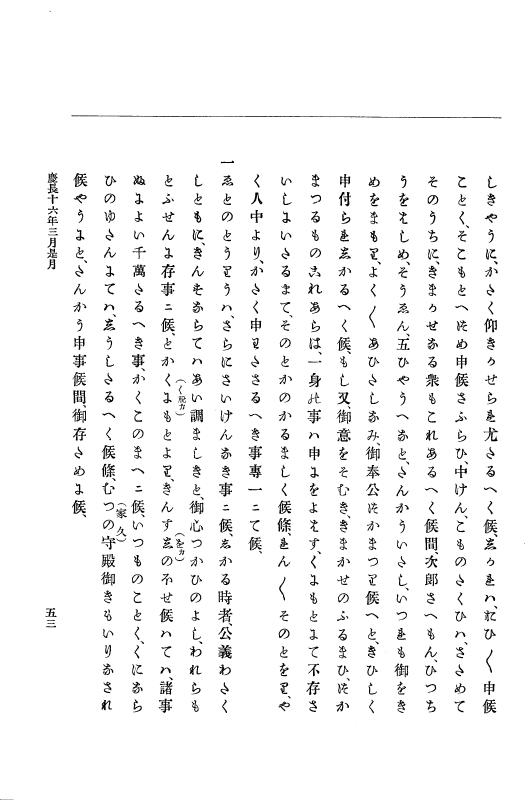 しきやうに、かさく仰きゝせらるゝ尤さるへく候、ゑゝるハ、於ひ〳〵申候
ことく、そこもとへつめ申候さふらひ、中けん、こものさくひハ、さゝめて
そのうちに、きまゝせある衆もこれあるへく候間、次郎さへもん、ひつち
うをはしめ、そうゑん、五ひやうへあと、さんかういさし、いつれも御をき
めをまもり、よく〳〵あひさしあみ、御奉公つかまつり候へと、きひしく
申付られゑかるへく候、もし又御意をそむき、きまかせのふるまひ、つか
まつるものこれあらは、一身の事ハ申よをよはす、くよもとまて不存さ
いしよいさるまて、そのとかのかるましく候條、れん〳〵そのとをり、や
く人中より、かさく申はさるへき事専一ニて候、
一ゑとのとうりうハ、さらにさいけんあき事ニ候、ゑかる時者、公義わさく
しともにきんすあらてハあい調ましきと、御心つかひのよし、われらも
とふせんよ存事ニ候、とかくよもとより、きんすゑの不せ候ハてハ、諸事
（く脱カ）
（をカ）
ぬよよい千萬さるへき事、かくこのまへニ候、いつものことく、くにあら
ひのゆさんまてハ、ゑうしさるへく候條、むつの守殿御きもいりあされ
（家久）
候やうよと、さんかう申事候間、御存さめよ候、
慶長十六年三月是月
五三